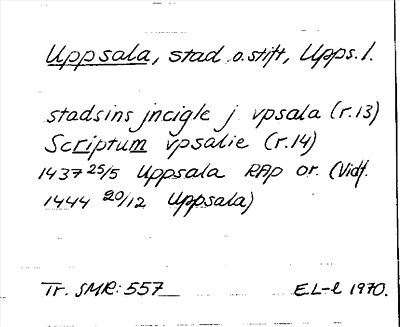 Uppsala, stad o. stift, Upps. l.
stadsins jncigle j vpsala (r.13)
Scriptum vpsalie (r.14)
1437 25/5 Uppsala RAp or. (Vidf.
1444 20/12 Uppsala)
Tr. SMR: 557 EL-l 1970.